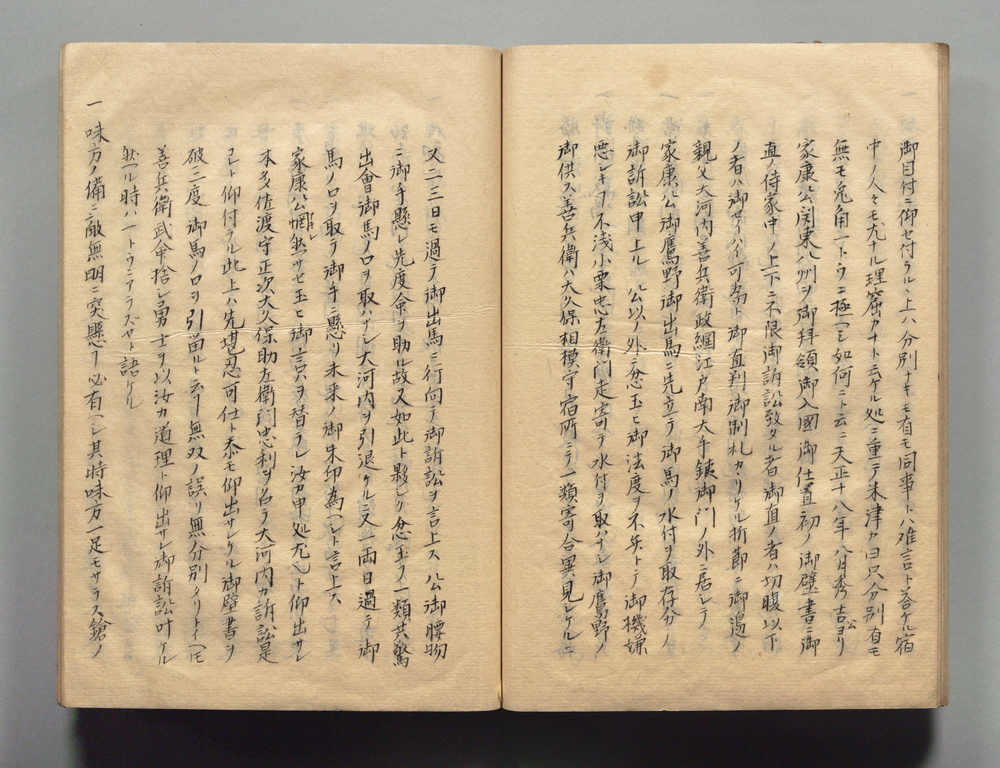 御目付ニ仰セ付ラルヽ上ハ分別ナキモ有モ同事トハ難言ト答ケル宿
中ノ人々モ尤ナル理窟カナト云ケル処ニ重テ米津カ曰只分別有モ
無モ兎角一トウニ極ヘシ如何ニト云ニ天正十八年八月秀吉公ヨリ
家康公関東八州ヲ御拝領御入國御仕置初ノ御壁書ニ御
直ノ侍家中ノ上下ニ不限御訴訟致タル者御直ノ者ハ切腹以下
ノ者ハ御セイハイ可為ト御直判御制札カヽリケル折節ニ御追ノ
親父大河内善兵衛政綱江戸南大手銕御門ノ外ニ居レテ
家康公御鷹野御出馬ニ先立テ御馬ノ水付ヲ取存分ノ
御訴訟申上ル 公以ノ外ニ忿玉ヒ御法度ヲ不矢トテ御機嫌
悪シキヿ不浅小栗忠左衛門走寄テ水付ヲ取ハナシ御鷹野ノ
御供ス善兵衛ハ大久保相模守宿所ニテ一類寄合異見シケルニ
又二三日モ過テ御出馬ニ行向テ御訴訟ヲ言上ス 公御腰物
ニ御手懸シ先度命ヲ助ル故又如此ト夥シク忿玉フ一類共驚
出會御馬ノ口ヲ取ハナシ大河内ヲ引退ケルニ又一両日過テ御
馬ノ口ヲ取テ御手ニ懸リ未来ノ御朱印為ヘシト言上ス
家康公惘然サセ玉ヒ御言ハヲ替ラシ汝カ申処尤シト仰出サレ
本多佐渡守正次大久保助左衛門忠利ヲ召ラ大河内カ訴訟是
ヨシト仰付ラル此上ハ先堪忍可仕ト忝モ仰出サレケル御壁書ヲ
破三度 御馬ノ口ヲ引留ルト云ヿ無双ノ誤リ無分別タリトイヘモ
善兵衛武命捨シ勇士ヲ以汝カ道理ト仰出サレ御訴訟叶ケル
然ル時ハ一トウニアラズヤト語ケル
一 味方ノ備ニ敵無明ニ突懸ヿ必有ヘシ其時味方一足モサラス鎗ノ